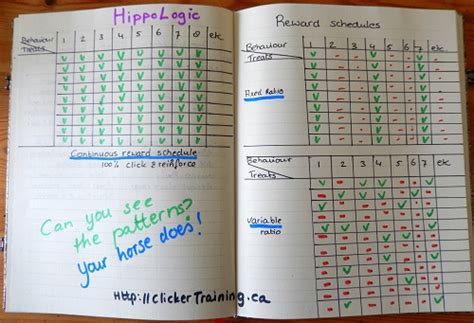 HippoLogic
Behaviour
Treats
1 2 3 4 5 6 7 8 etc.
Continuous reward schedule
100% click & reinforce
Can you see
the patterns?
your horse does!
Reward schedules
Behaviour
Treats
1 2 3 4 5 6 7 etc
Fixed Ratio
Behaviour
Treats
1 2 3 4 5 6 7 etc
Variable
ratio
Http://clickerTraining.ca